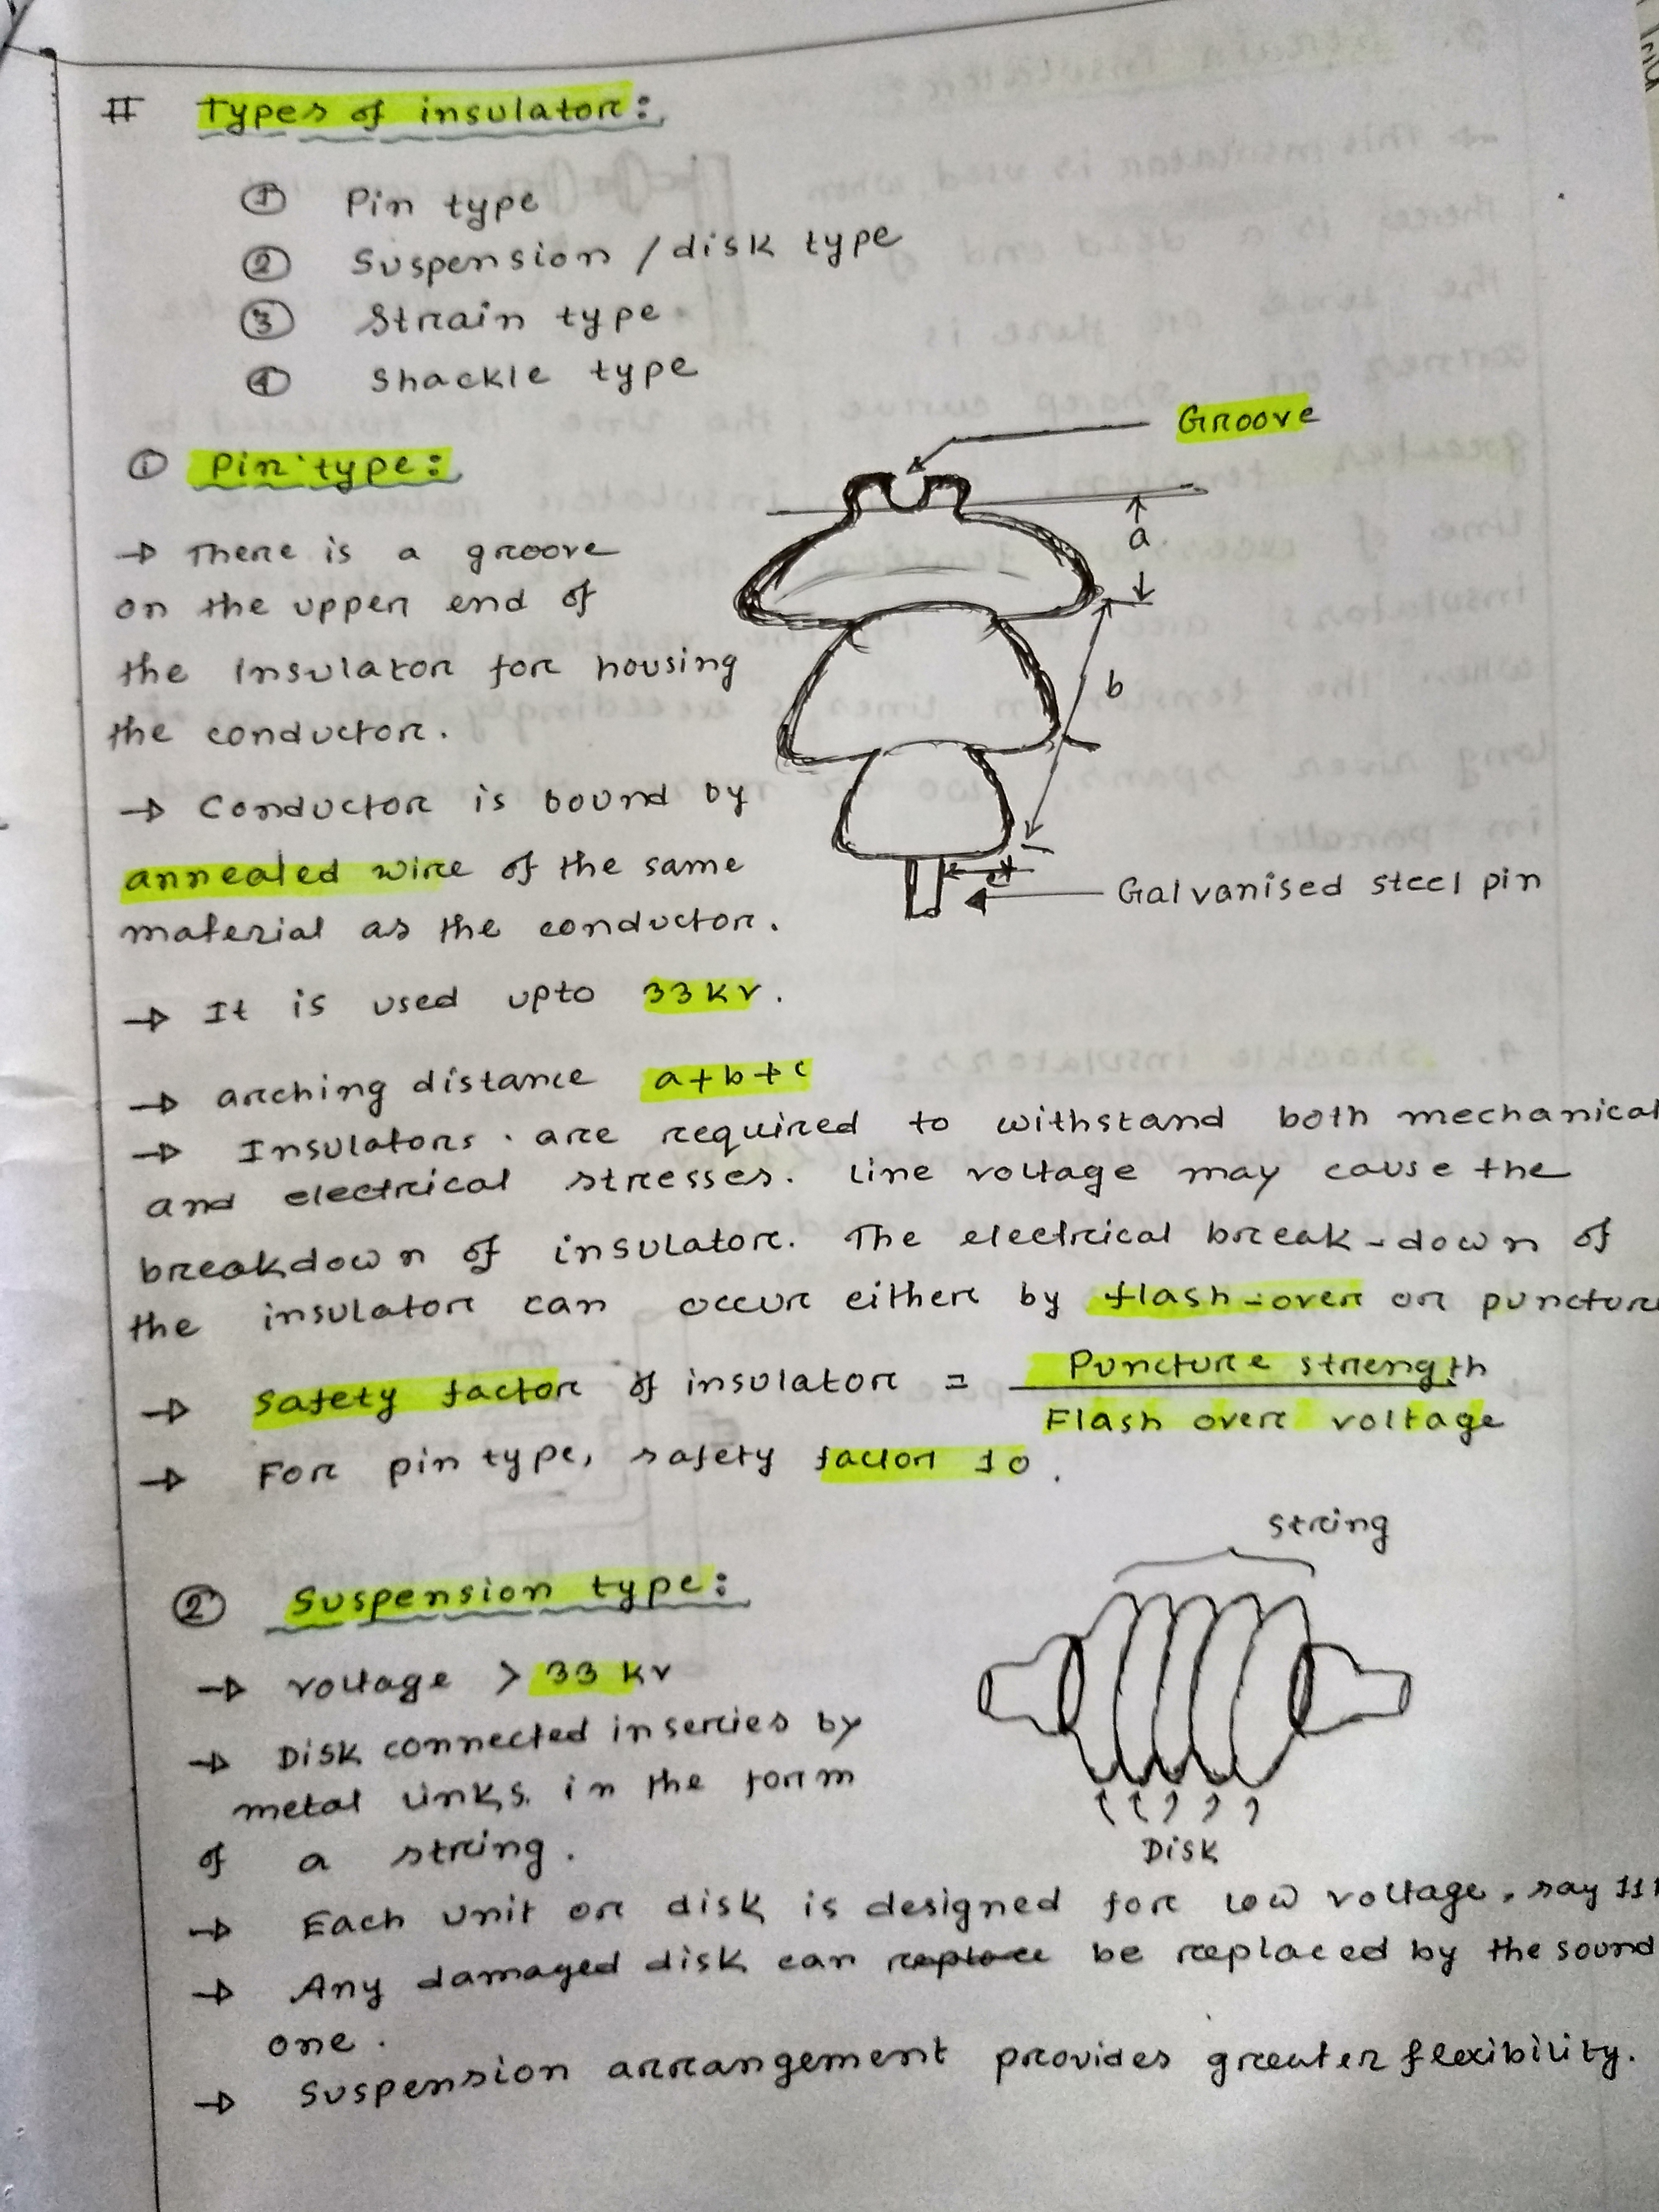 # Types of insulator:
① Pin type
② Suspension / disk type
③ Strain type
④ Shackle type
Groove
① Pin type:
a
→ There is a groove
on the upper end of
the insulator for housing
the conductor.
b
→ Conductor is bound by
annealed wire of the same
material as the conductor.
Galvanised steel pin
→ It is used upto 33 kv.
→ arching distance a+b+c
→ Insulators are required to withstand both mechanical
and electrical stresses. Line voltage may cause the
breakdown of insulator. The electrical break-down of
the insulator can occur either by flash-over or puncture
→ Safety factor of insulator = Puncture strength
Flash over voltage
→ For pin type, safety factor 10.
String
② Suspension type:
→ voltage > 33 kv
→ Disk connected in series by
metal links. in the form
of a string.
Disk
→ Each unit or disk is designed for low voltage, say 11
→ Any damaged disk can replace be replaced by the sound
one.
→ Suspension arrangement provides greater flexibility.